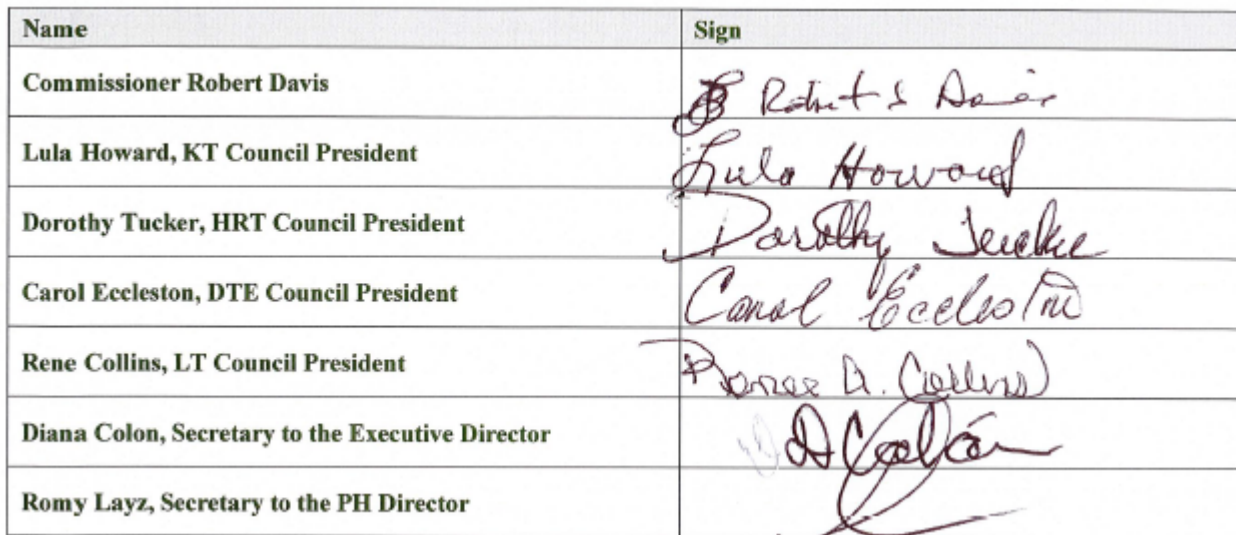 Name Sign
Commissioner Robert Davis Robert S Davis
Lula Howard, KT Council President Lula Howard
Dorothy Tucker, HRT Council President Dorothy Tucker
Carol Eccleston, DTE Council President Carol Eccleston
Rene Collins, LT Council President Renee A. Collins
Diana Colon, Secretary to the Executive Director D Colón
Romy Layz, Secretary to the PH Director